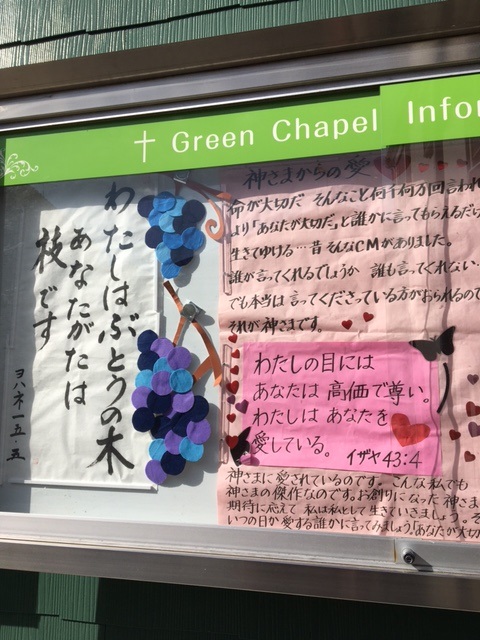 ✝ Green Chapel Infor
わたしはぶとうの木
あなたがたは
枝です
ヨハネ一五・五
神さまからの愛
命が大切だ そんなこと何千何万回言われ
より「あなたが大切だ」と誰かに言ってもらえるだけ
生きてゆける…昔 そんなCMがありました。
誰が言ってくれるでしょうか 誰も言ってくれない…
でも本当は 言ってくださっている方がおられるので
それが神さまです。
わたしの目には
あなたは 高価で尊い。
わたしは あなたを
愛している。 イザヤ43:4
神さまに愛されているのです。こんな私でも
神さまの傑作なのです。お創りになった 神さま
期待に応えて 私は私として 生きていきましょう。そ
いつの日か愛する誰かに言ってみましょう「あなたが大切